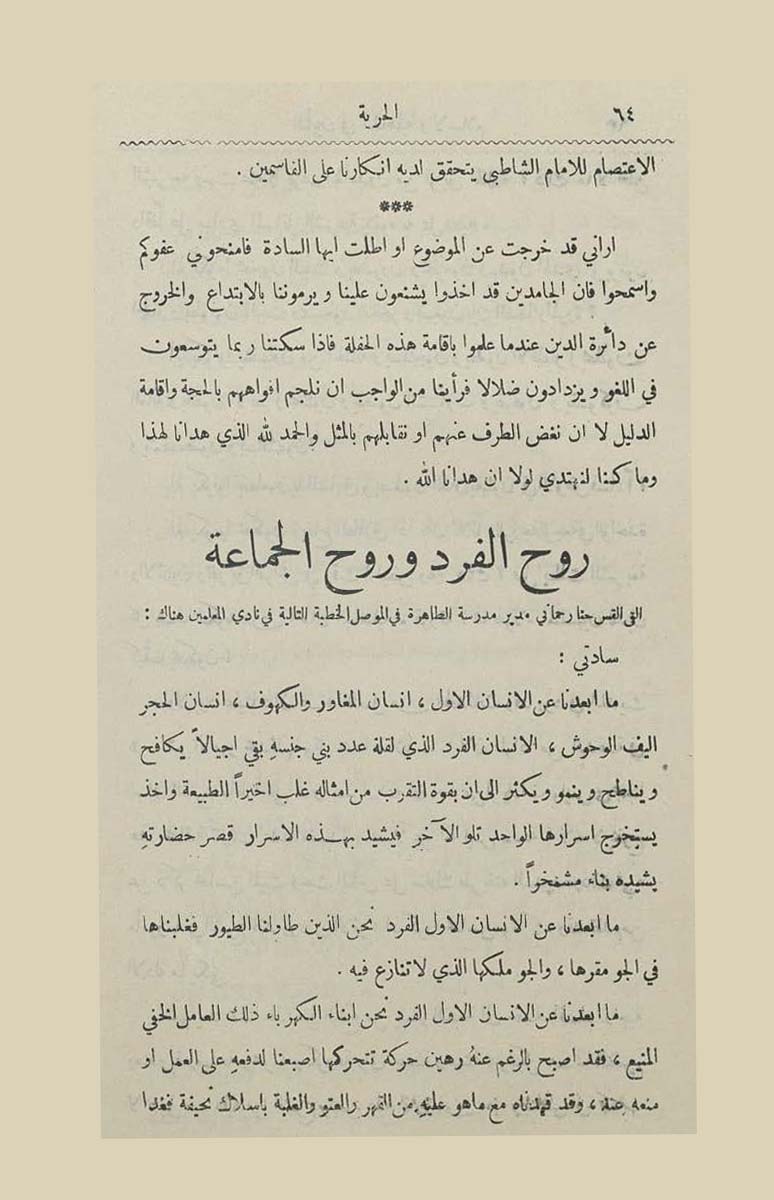 ٦٤ الحرية
الاعتصام للامام الشاطبي يتحقق لديه انكارنا على القاسمين .
***
اراني قد خرجت عن الموضوع او اطلت ايها السادة فامنحوني عفوكم
واسمحوا فان الجامدين قد اخذوا يشنعون علينا ويرموننا بالابتداع والخروج
عن دائرة الدين عندما علموا باقامة هذه الحفلة فاذا سكتنا ربما يتوسعون
في اللغو ويزدادون ضلالا فرأينا من الواجب ان نلجم افواههم بالحجة واقامة
الدليل لا ان نغض الطرف عنهم او نقابلهم بالمثل والحمد لله الذي هدانا لهذا
وما كنا لنهتدي لولا ان هدانا الله .
روح الفرد وروح الجماعة
القى القس حنا رحماني مدير مدرسة الطاهرة في الموصل الخطبة التالية في نادي المعلمين هناك :
سادتي :
ما ابعدنا عن الانسان الاول ، انسان المغاور والكهوف ، انسان الحجر
اليف الوحوش ، الانسان الفرد الذي لقلة عدد بني جنسهِ بقي اجيالاً يكافح
ويناطح وينمو ويكثر الى ان بقوة التقرب من امثاله غلب اخيراً الطبيعة واخذ
يستخرج اسرارها الواحد تلو الآخر فيشيد بهـذه الاسرار قصر حضارتهِ
يشيده بناء مشمخراً .
ما ابعدنا عن الانسان الاول الفرد نحن الذين طاولنا الطيور فغلبناها
في الجو مقرها ، والجو ملكها الذي لا تنازع فيه .
ما ابعدنا عن الانسان الاول الفرد نحن ابناء الكهرباء ذلك العامل الخفي
المنيع ، فقد اصبح بالرغم عنهُ رهين حركة تتحركها اصبعنا لدفعهِ على العمل او
منعه عنه ، وقد قيدناه مع ماهو عليهِ من القهر والعتو والغلبة باسلاك نحيفة فغدا